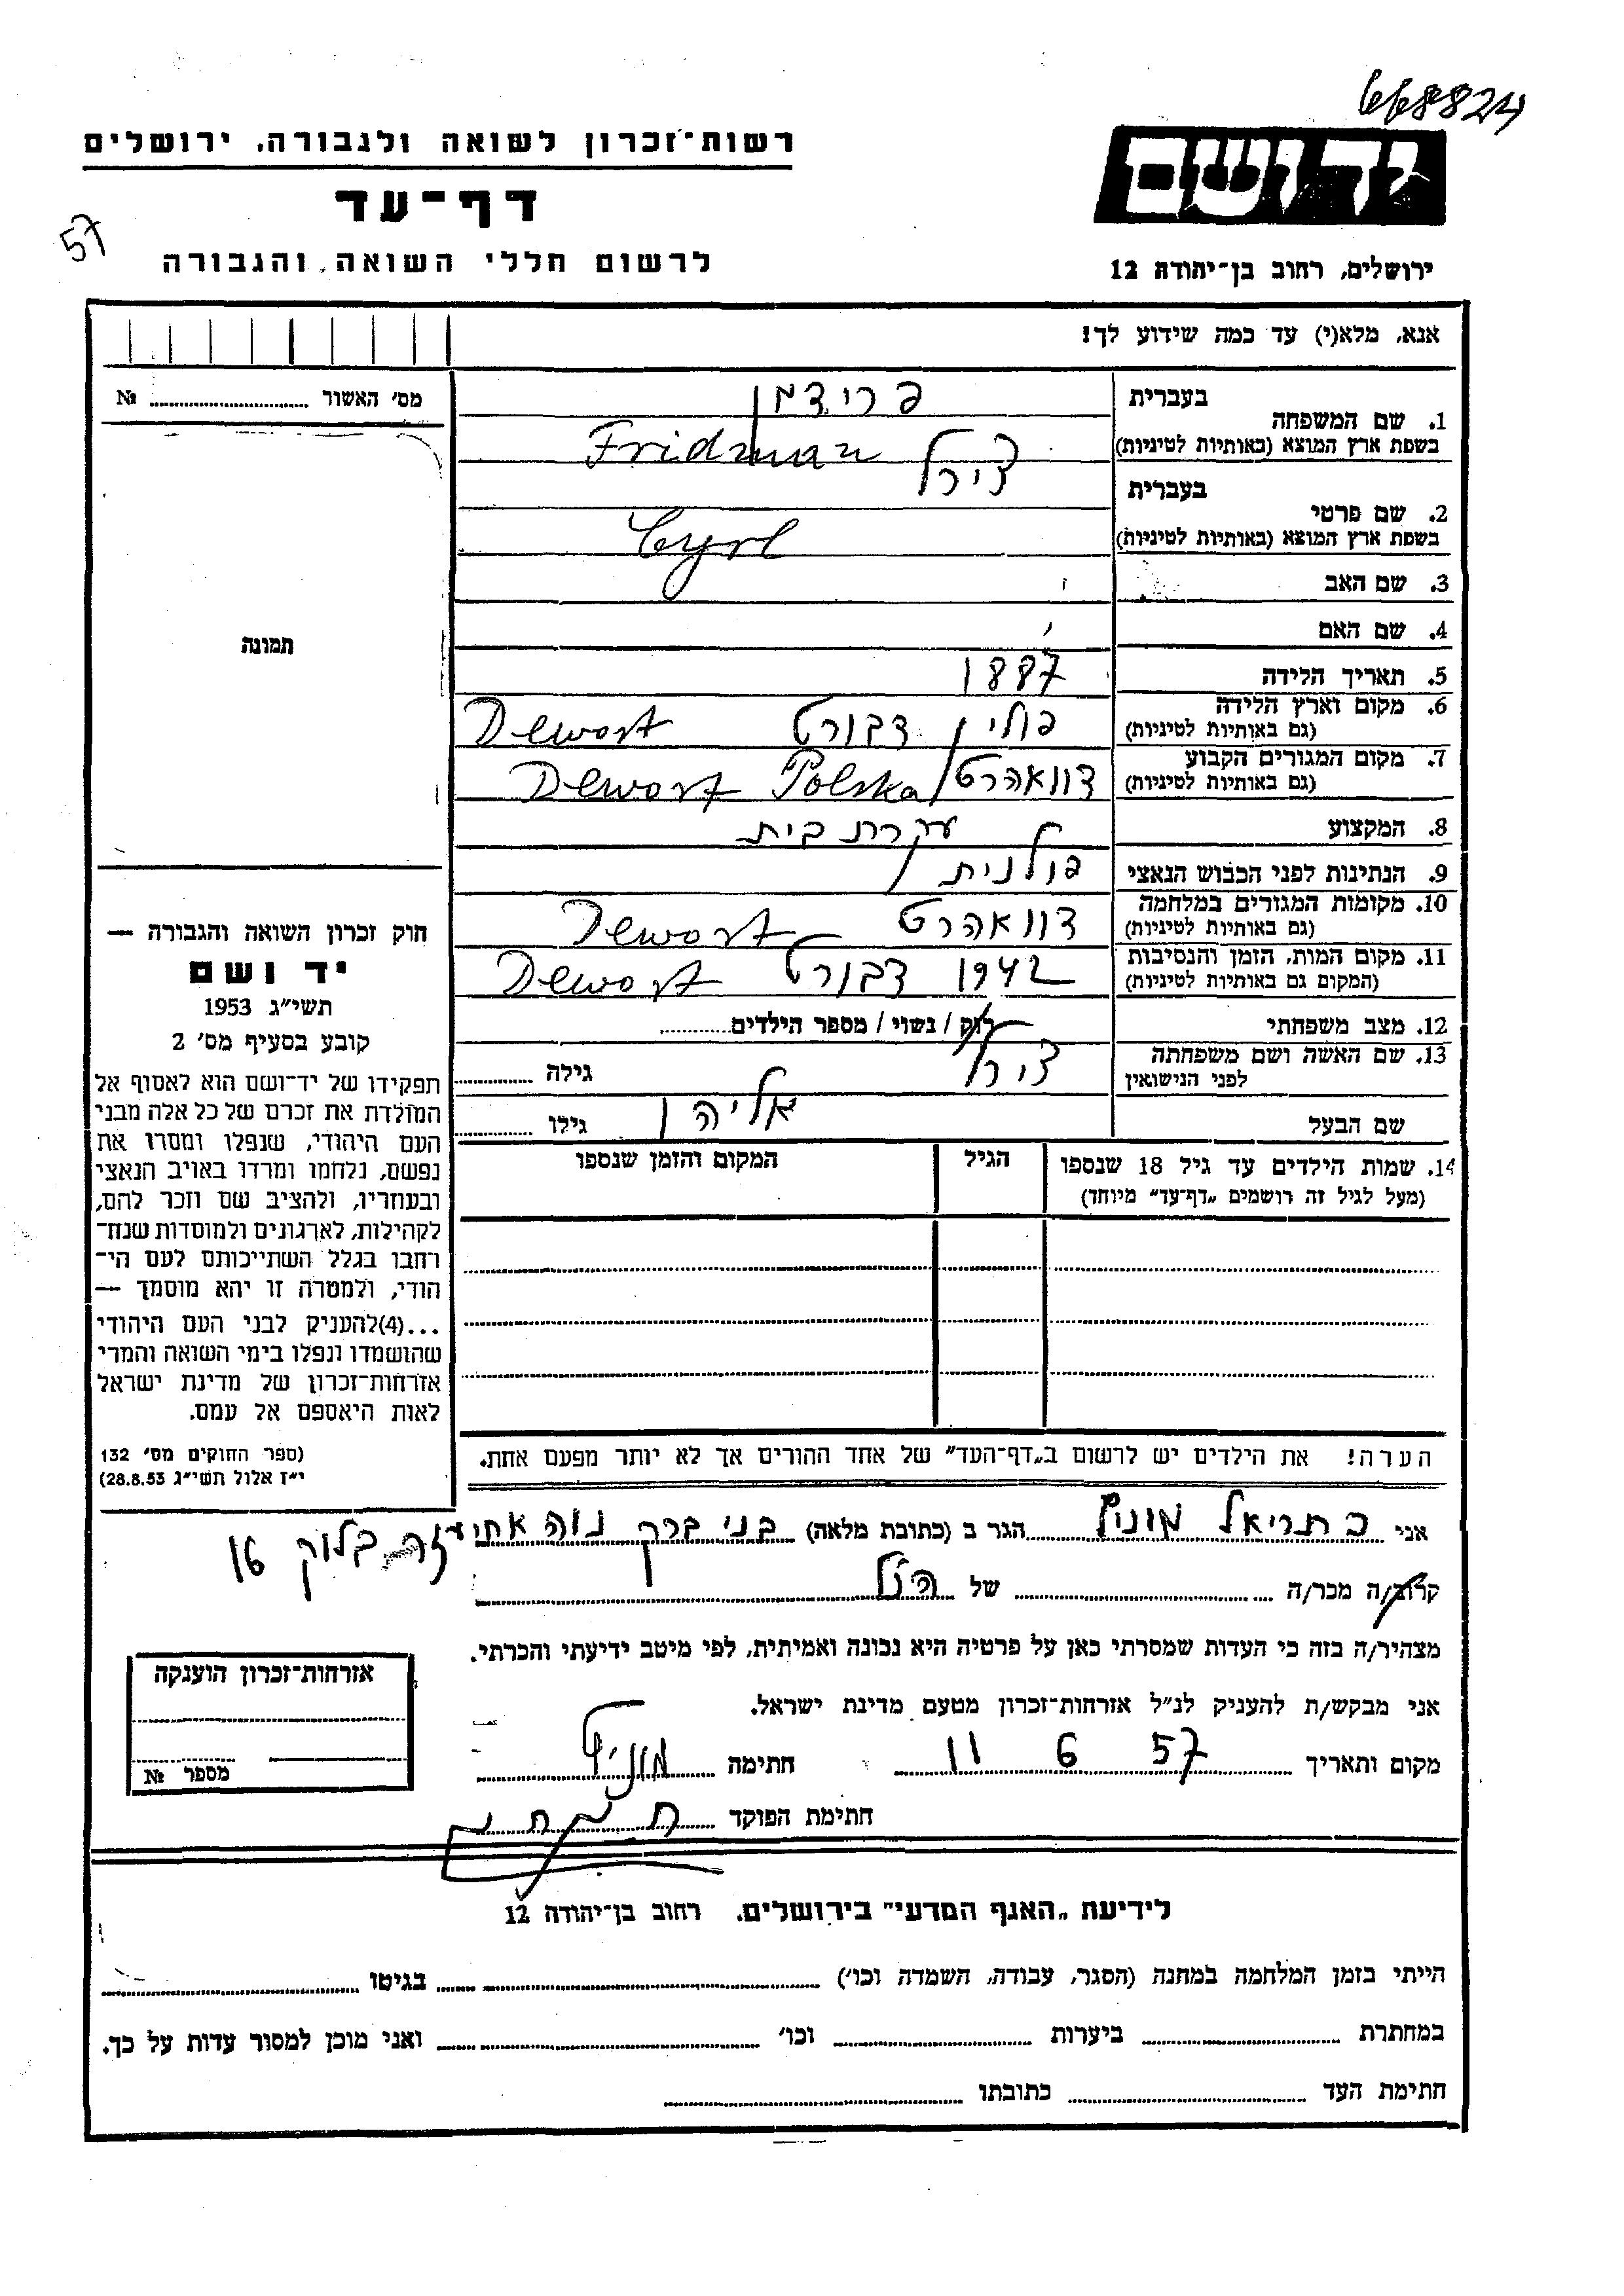 668824
יד ושם
רשות-זכרון לשואה ולגבורה, ירושלים
דף-עד
57
לרשום חללי השואה והגבורה
ירושלים, רחוב בן-יהודה 12
אנא, מלא(י) עד כמה שידוע לך!
מס׳ האשור № 
1. שם המשפחה
בעברית פרידמן
בשפת ארץ המוצא (באותיות לטיניות) Fridman
2. שם פרטי
בעברית צירל
בשפת ארץ המוצא (באותיות לטיניות) Cyrl
3. שם האב
4. שם האם
תמונה
5. תאריך הלידה 1887
6. מקום וארץ הלידה
(גם באותיות לטיניות) פולין דבורט Dewort
7. מקום המגורים הקבוע
(גם באותיות לטיניות) דוואהרט Dewort Polska
8. המקצוע עקרת בית
9. הנתינות לפני הכבוש הנאצי פולנית
10. מקומות המגורים במלחמה
(גם באותיות לטיניות) דוואהרט Dewort
11. מקום המות, הזמן והנסיבות
(המקום גם באותיות לטיניות) 1942 דבורט Dewort
12. מצב משפחתי רוק / נשוי / מספר הילדים
13. שם האשה ושם משפחתה
לפני הנישואין צירל גילה
שם הבעל אליהו גילו
14. שמות הילדים עד גיל 18 שנספו
(מעל לגיל זה רושמים „דף-עד״ מיוחד)
הגיל
המקום והזמן שנספו
חוק זכרון השואה והגבורה —
יד ושם
תשי״ג 1953
קובע בסעיף מס׳ 2
תפקידו של יד-ושם הוא לאסוף אל
המולדת את זכרם של כל אלה מבני
העם היהודי, שנפלו ומסרו את
נפשם, נלחמו ומרדו באויב הנאצי
ובעוזריו, ולהציב שם וזכר להם,
לקהילות, לארגונים ולמוסדות שנח-
רחבו בגלל השתייכותם לעם הי-
הודי, ולמטרה זו יהא מוסמך —
...(4)להעניק לבני העם היהודי
שהושמדו ונפלו בימי השואה והמרי
אזרחות-זכרון של מדינת ישראל
לאות היאספם אל עמם.
(ספר החוקים מס׳ 132
י״ז אלול תשי״ג 28.8.53)
הערה! את הילדים יש לרשום ב„דף-העד״ של אחד ההורים אך לא יותר מפעם אחת.
אני כתריאל הגר ב (כתובת מלאה) בני ברק נוה אחיעזר בלוק 16
קרוב/ה מכר/ה של הנ״ל
מצהיר/ה בזה כי העדות שמסרתי כאן על פרטיה היא נכונה ואמיתית, לפי מיטב ידיעתי והכרתי.
אני מבקש/ת להעניק לנ״ל אזרחות-זכרון מטעם מדינת ישראל.
מקום ותאריך 11 6 57 חתימה
חתימת הפוקד
אזרחות-זכרון הוענקה
מספר №
לידיעת „האגף המדעי״ בירושלים, רחוב בן-יהודה 12
הייתי בזמן המלחמה במחנה (הסגר, עבודה, השמדה וכו׳) בגיטו
במחתרת ביערות וכו׳ ואני מוכן למסור עדות על כך.
חתימת העד כתובתו